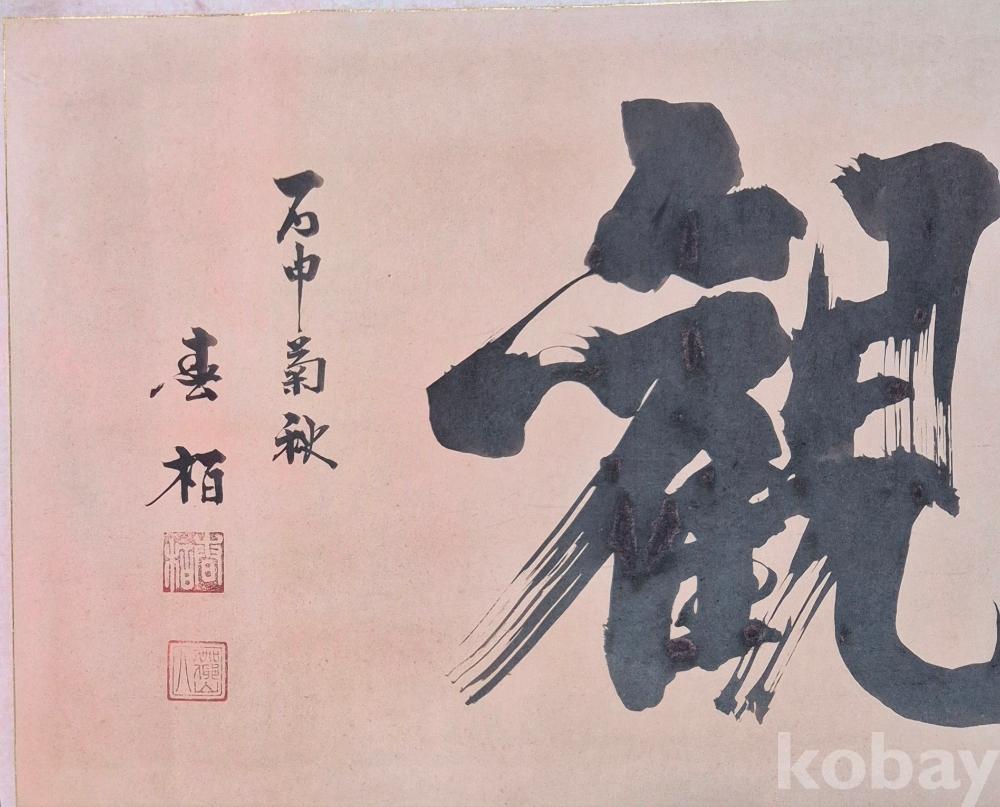 觀
丙申菊秋
春栢
kobay